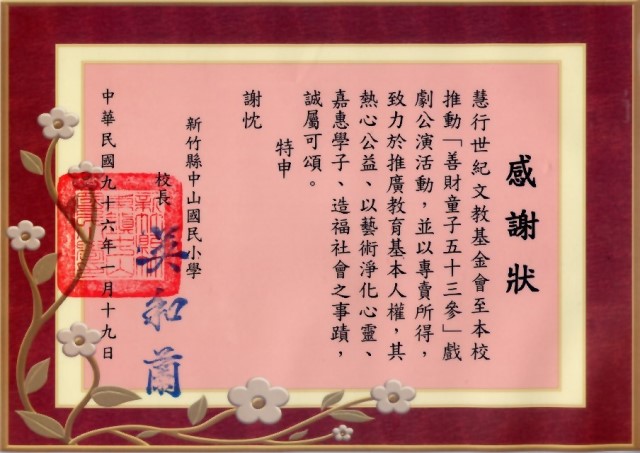 感謝狀
慧行世紀文教基金會至本校
推動「善財童子五十三參」戲
劇公演活動，並以專賣所得，
致力於推廣教育基本人權，其
熱心公益、以藝術淨化心靈、
嘉惠學子、造福社會之事蹟，
誠屬可頌。
特申
謝忱
新竹縣中山國民小學
校長
中華民國九十六年一月十九日